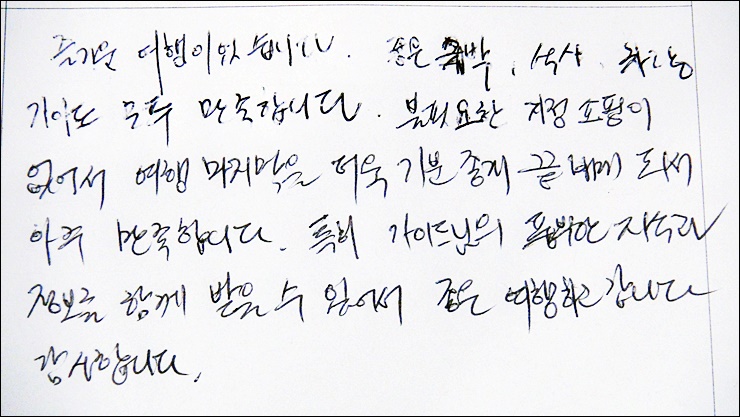 즐거운 여행이었습니다. 좋은 숙박, 식사, 차량
가이드 모두 만족합니다. 불필요한 지정 쇼핑이
없어서 여행 마지막을 더욱 기분 좋게 끝내게 되서
아주 만족합니다. 특히 가이드님의 풍부한 지식과
정보를 함께 받을 수 있어서 좋은 여행하고 갑니다
감사합니다.